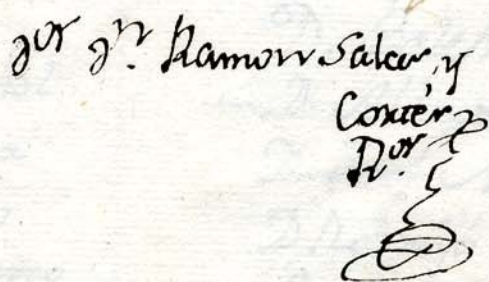 Dor Dn. Ramon Salas, y
Cortés
Ror.